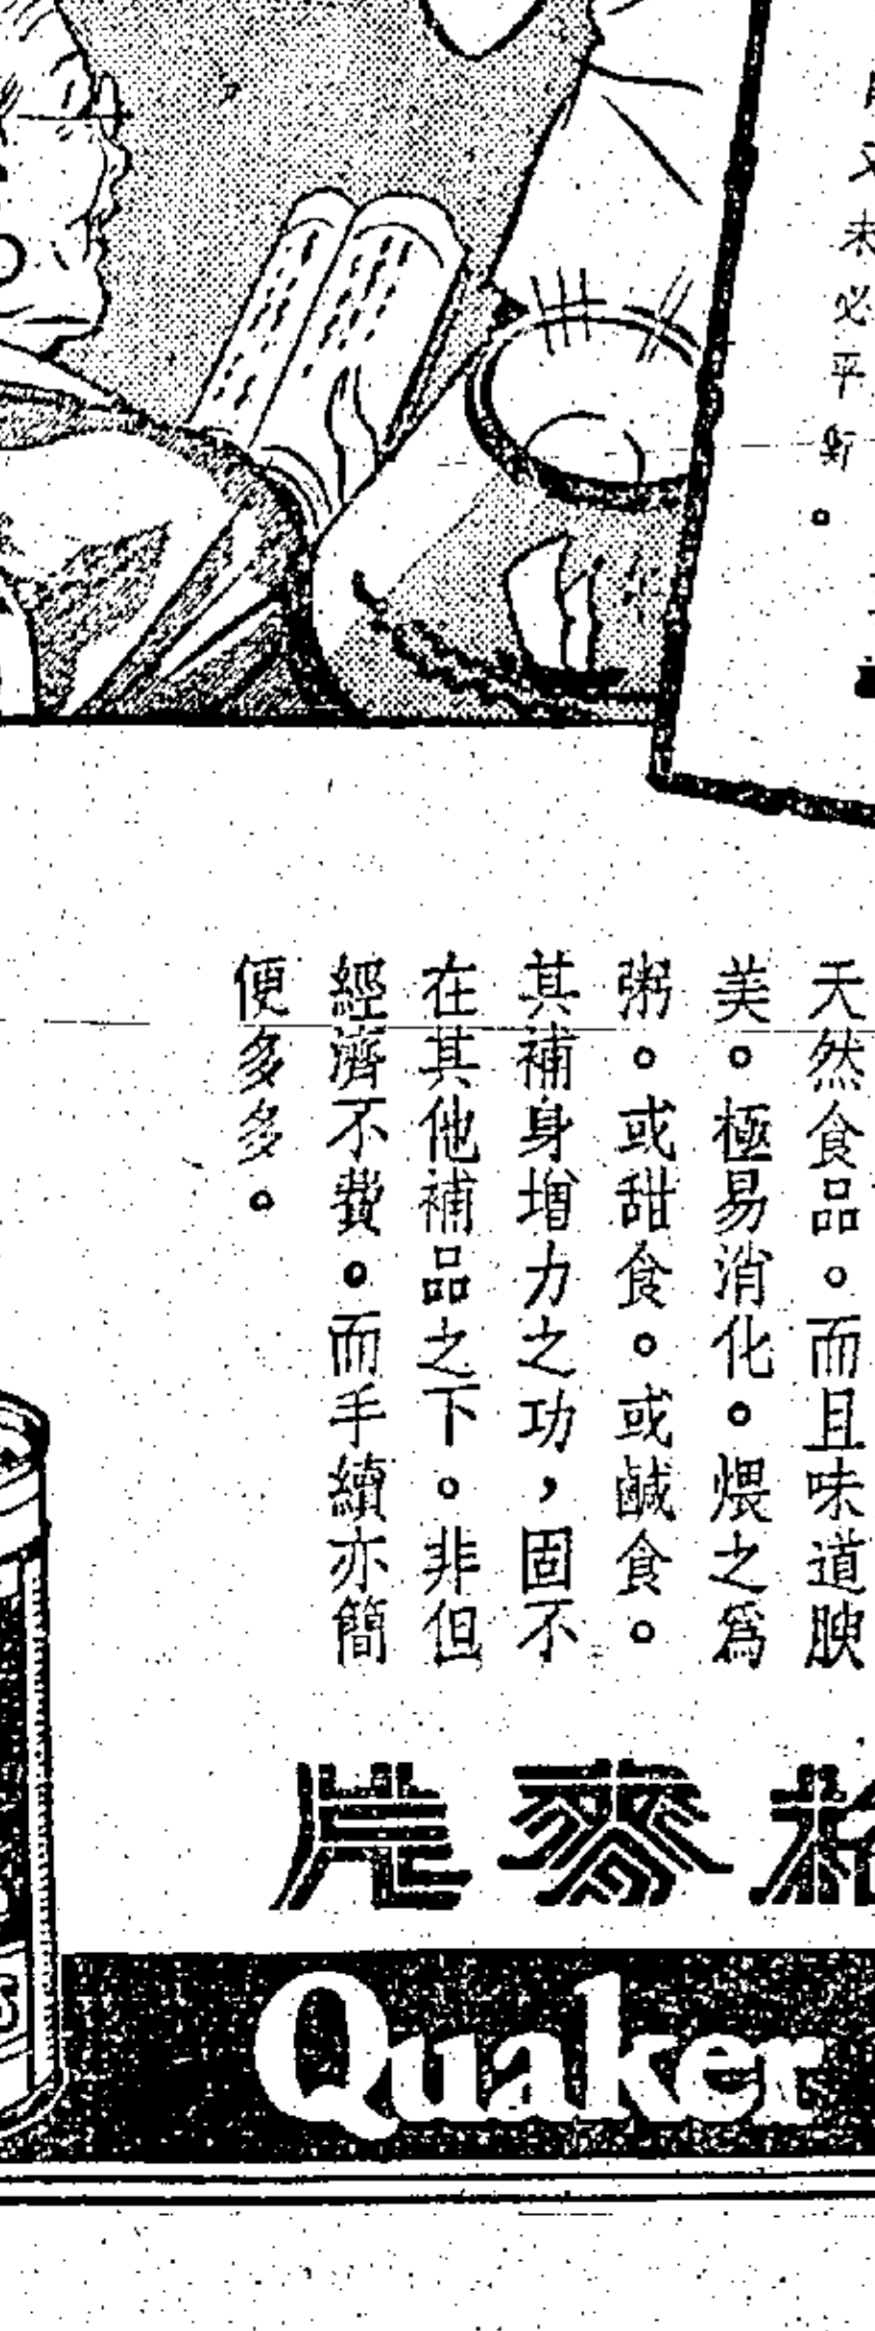 又未必平衡。
天然食品。而且味道腴
美。極易消化。煨之爲
粥。或甜食。或鹹食。
其補身增力之功，固不
在其他補品之下。非但
經濟不費。而手續亦簡
便多多。
片麥格
Quaker